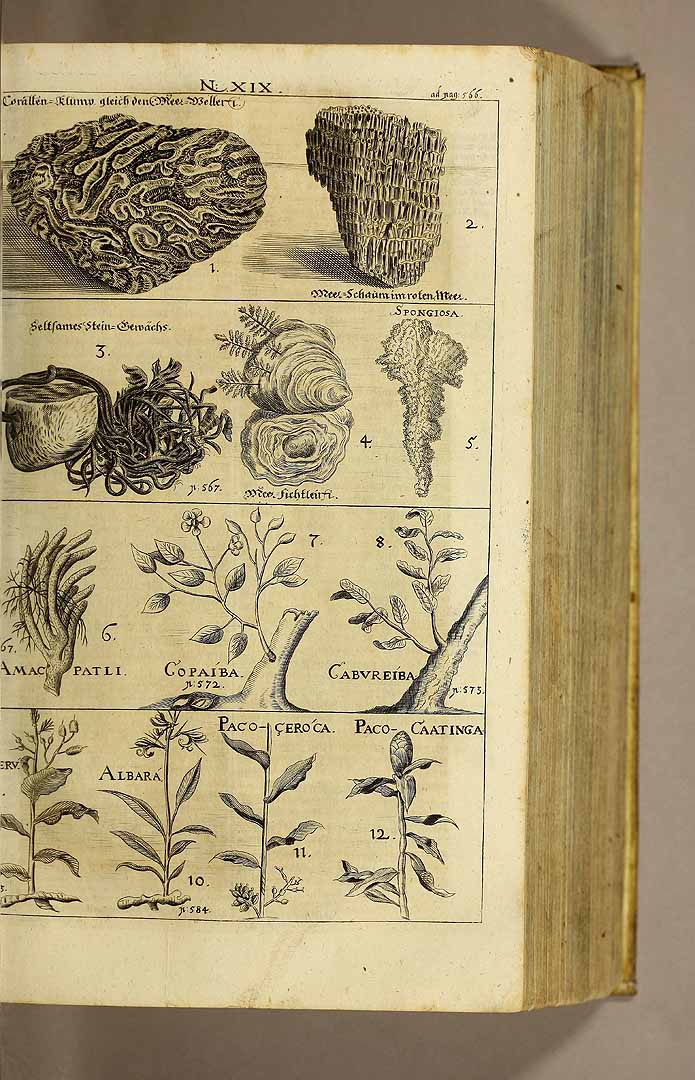 N: XIX.
ad pag: 566.
Corallen-Klump gleich den Meer-Wellen
1.
2.
Meer-Schaum im roten Meer.
Seltsames Stein-Gewächs.
3.
n: 567.
4.
SPONGIOSA.
5.
67.
6.
AMAC PATLI.
7.
COPAIBA.
n: 572.
8.
CABVREIBA
n: 573.
ERV.
ALBARA
10.
n: 584.
PACO-ÇEROCA.
11.
PACO-CAATINGA
12.